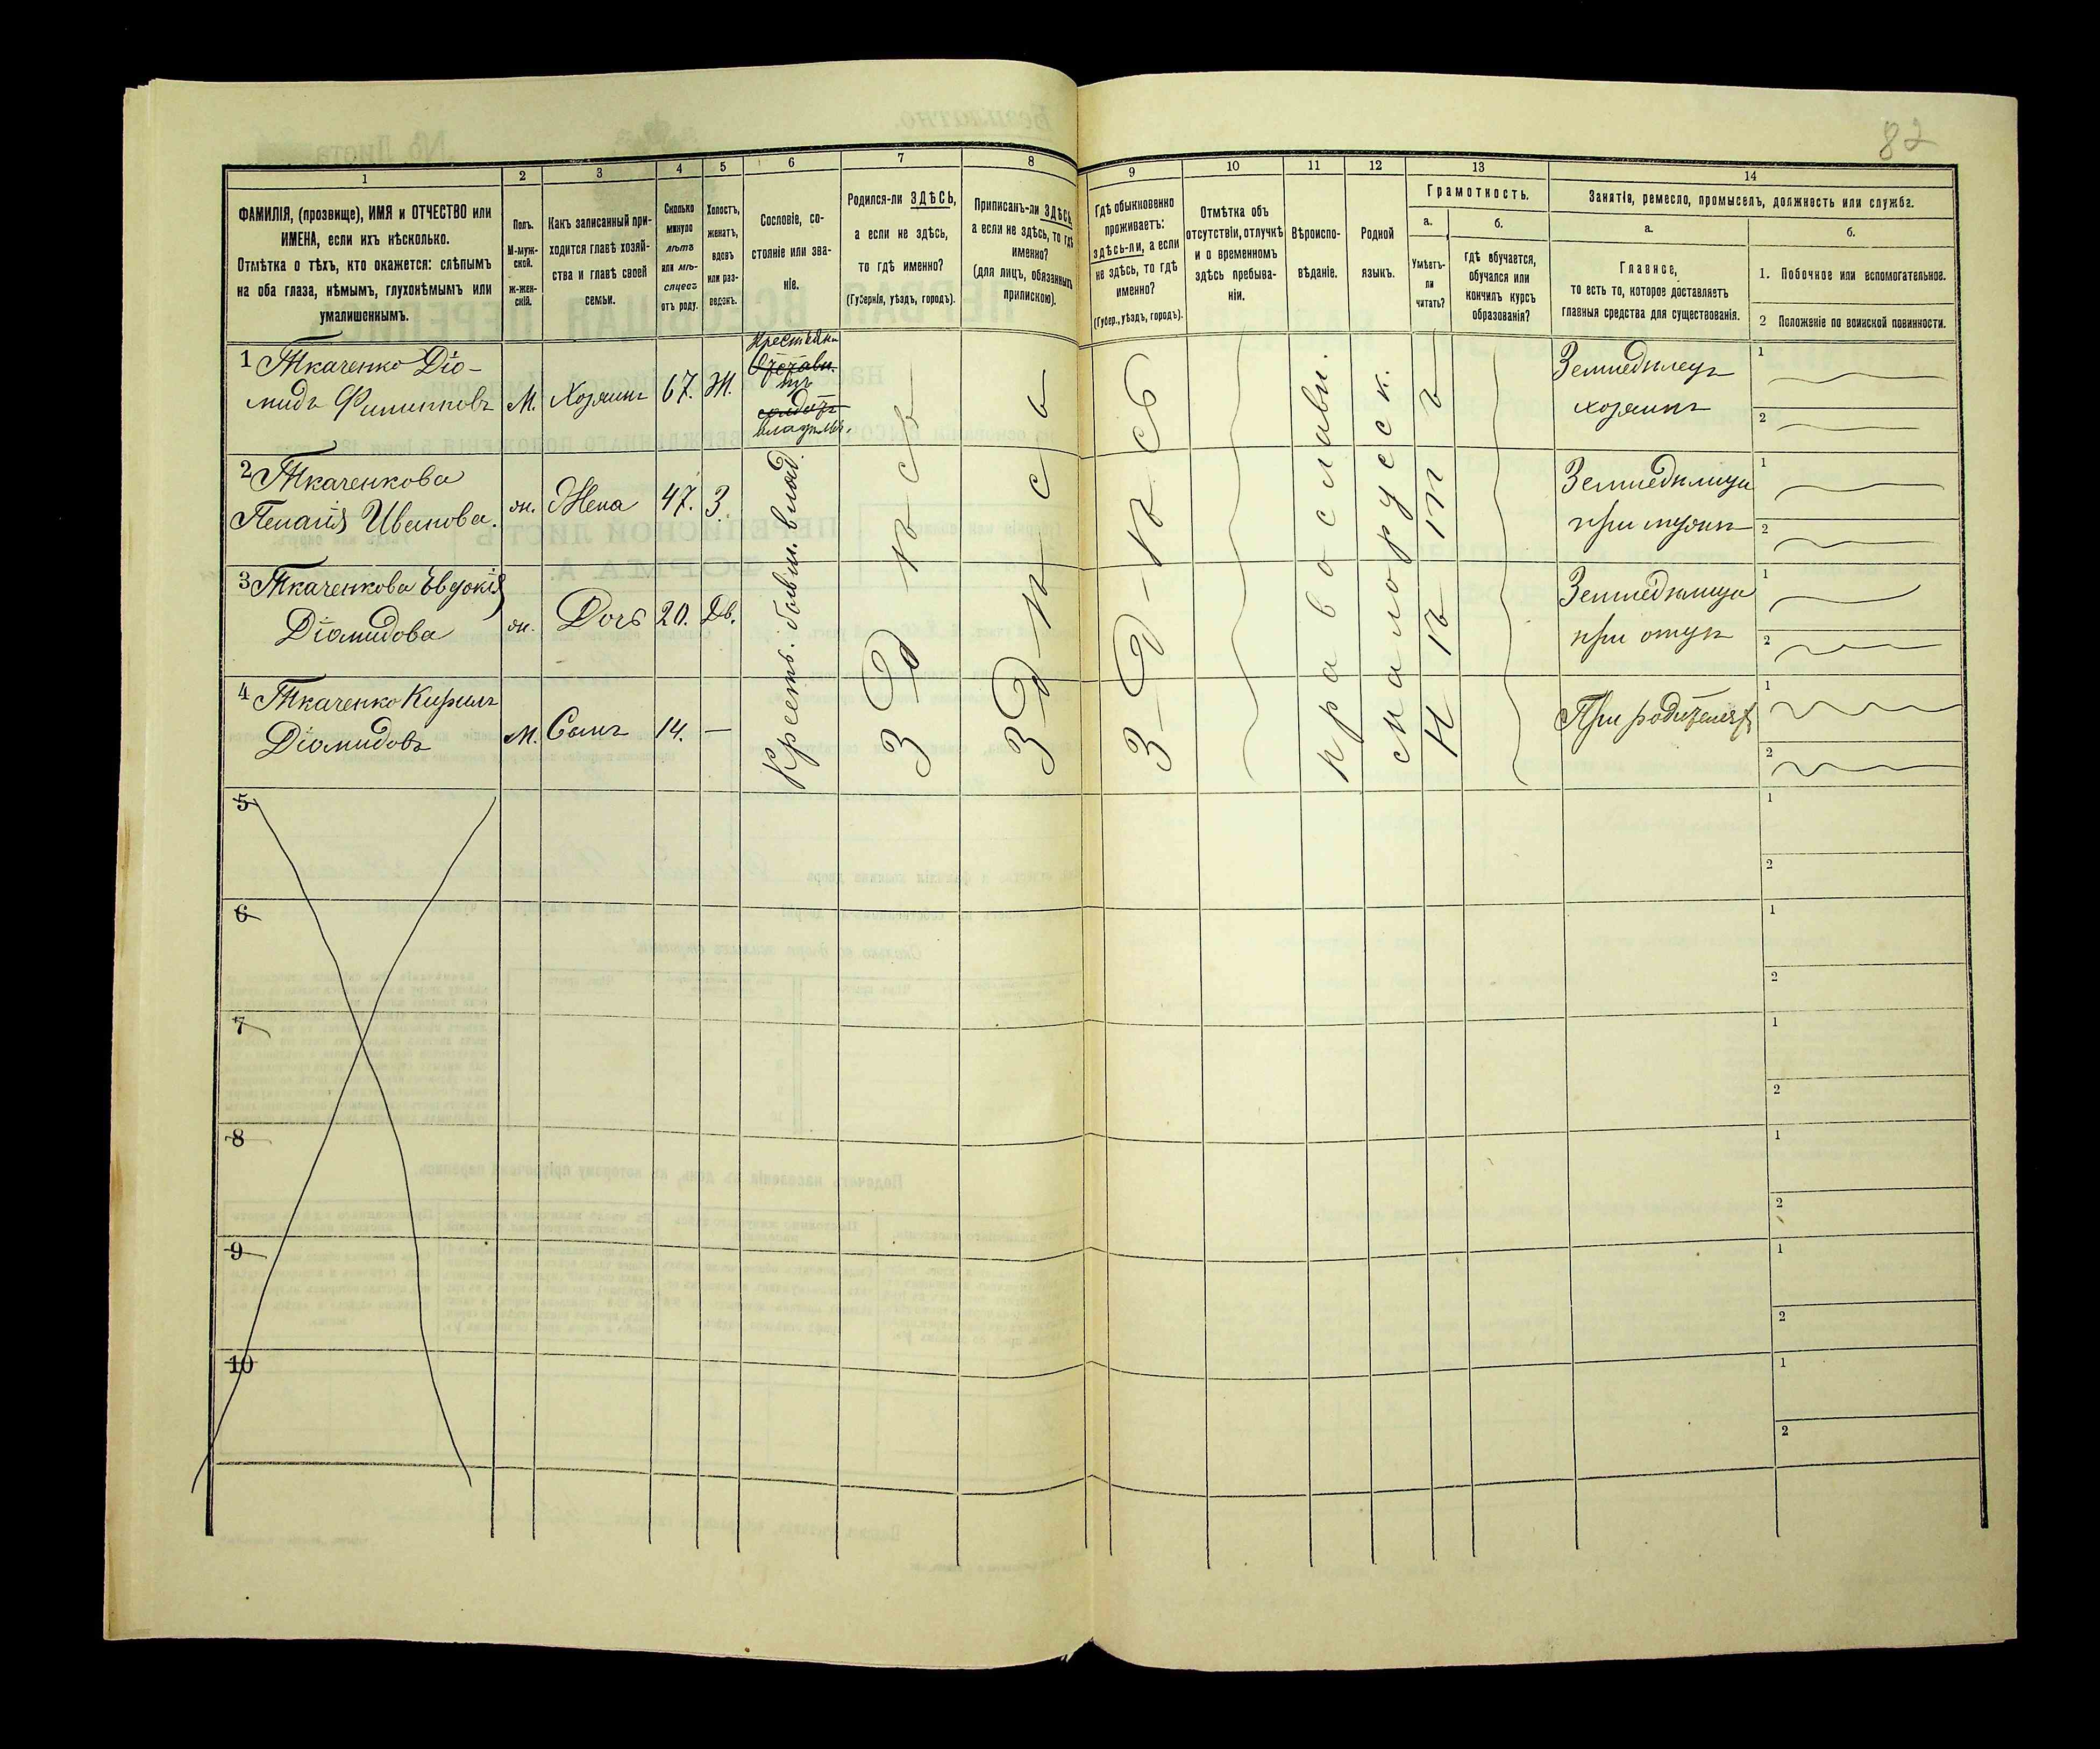 82
1
2
3
4
5
6
7
8
9
10
11
12
13
14
ФАМИЛІЯ, (прозвище), ИМЯ и ОТЧЕСТВО или
ИМЕНА, если ихъ нѣсколько.
Отмѣтка о тѣхъ, кто окажется: слѣпымъ
на оба глаза, нѣмымъ, глухонѣмымъ или
умалишеннымъ.
Полъ.
М-муж-
ской.
Ж-жен-
скій.
Какъ записанный при-
ходится главѣ хозяй-
ства и главѣ своей
семьи.
Сколько
минуло
лѣтъ
или мѣ-
сяцевъ
отъ роду.
Холостъ,
женатъ,
вдовъ
или раз-
веденъ.
Сословіе, со-
стояніе или зва-
ніе.
Родился-ли ЗДѢСЬ,
а если не здѣсь,
то гдѣ именно?
(Губернія, уѣздъ, городъ).
Приписанъ-ли ЗДѢСЬ,
а если не здѣсь, то гдѣ
именно?
(для лицъ, обязанныхъ
припискою).
Гдѣ обыкновенно
проживаетъ:
здѣсь-ли, а если
не здѣсь, то гдѣ
именно?
(Губер., уѣздъ, городъ).
Отмѣтка объ
отсутствіи, отлучкѣ
и о временномъ
здѣсь пребыва-
ніи.
Вѣроиспо-
вѣданіе.
Родной
языкъ.
Грамотность.
а.
Умѣетъ-
ли
читать?
б.
гдѣ обучается,
обучался или
кончилъ курсъ
образованія?
Занятіе, ремесло, промыселъ, должность или служба.
а.
Главное,
то есть то, которое доставляетъ
главныя средства для существованія.
б.
1. Побочное или вспомогательное.
2 Положеніе по воинской повинности.
1 Ткаченко Діо-
мидъ Филипповъ
М.
Хозяинъ
67.
Ж.
Крестьян
владѣл.
Земледѣлец
хозяинъ
1
2
2 Ткаченкова
Пелагія Иванова.
ж.
Жена
47.
З.
Земледѣлица
при мужѣ
1
2
3 Ткаченкова Евдокія
Діомидова
ж.
Дочь
20.
Дѣв.
Земледѣлица
при отцѣ
1
2
4 Ткаченко Кирилъ
Діомидовъ
М.
Сынъ
14.
—
При родителях
1
2
Крестъ. бывш. влад.
Здѣсь
Здѣсь
Здѣсь
православн.
малорусск.
Нѣтъ
5
1
2
6
1
2
7
1
2
8
1
2
9
1
2
10
1
2